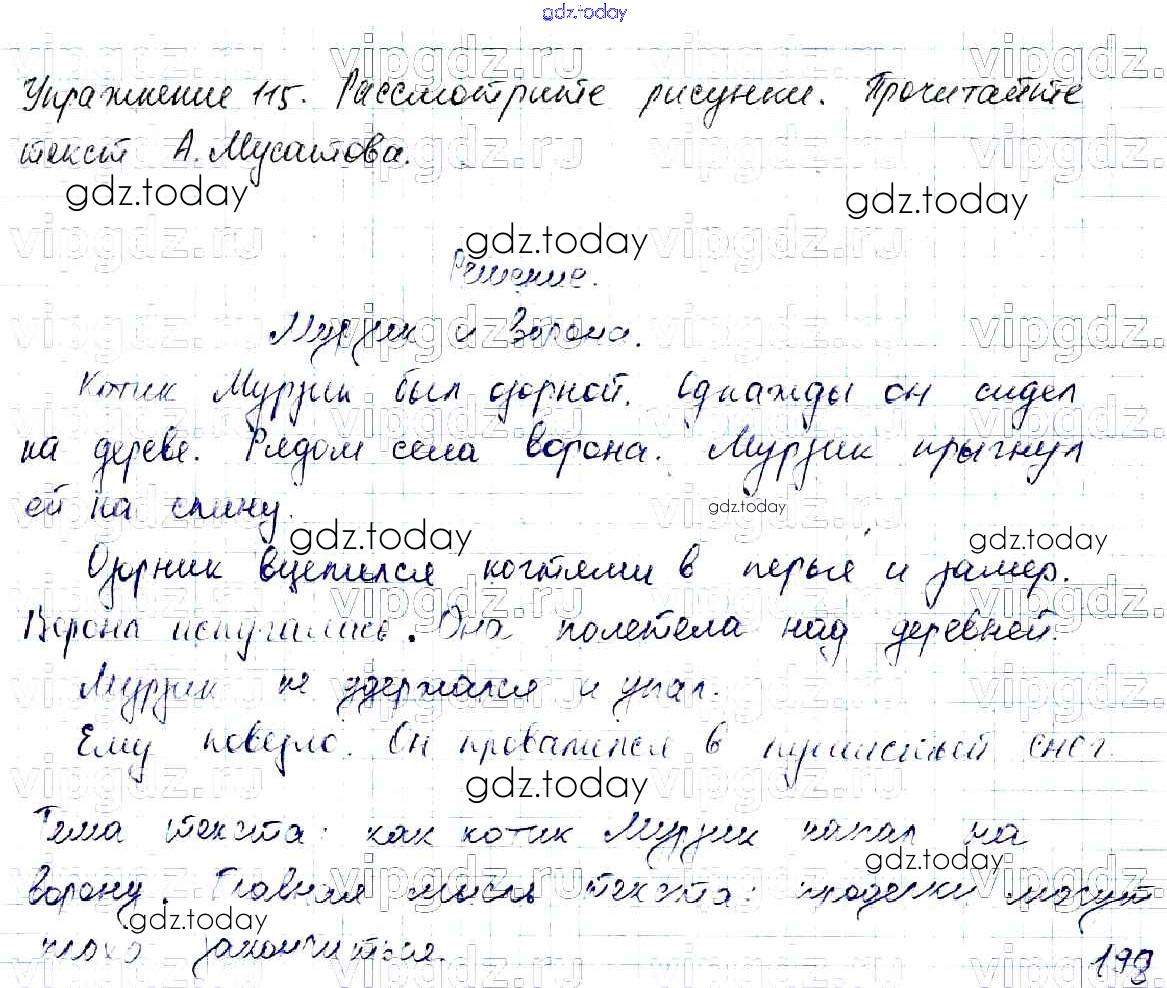 gdz.today
Упражнение 115. Рассмотрите рисунки. Прочитайте
текст А. Мусатова.
gdz.today gdz.today
gdz.today
Решение.
Мурзик и Ворона.
Котик Мурзик был озорной. Однажды он сидел
на дереве. Рядом села ворона. Мурзик прыгнул
ей на спину.
gdz.today
gdz.today gdz.today
Озорник вцепился когтями в перья и замер.
Ворона испугалась. Она полетела над деревней.
Мурзик не удержался и упал.
Ему повезло. Он провалился в пушистый снег.
gdz.today
Тема текста: как котик Мурзик напал на
gdz.today
ворону. Главная мысль текста: проделки могут
gdz.today
плохо закончиться.
198
vipgdz.ru